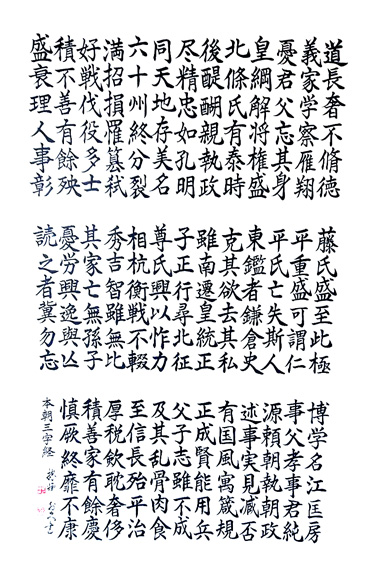 道長奢不脩德
義家学察雁翔
憂君父忘其身
皇綱解将権盛
北條氏有泰時
後醍醐親執政
尽精忠如孔明
同天地存美名
六十州終分裂
満招損罹簒弑
好戦伐役多士
積不善有餘殃
盛衰理人事彰
藤氏盛至此極
平重盛可謂仁
平氏亡失斯人
東鑑者鎌倉史
克其欲去其私
雖南遷皇統正
子正行尋北征
尊氏興以作力
相抗衡戦不輟
秀吉智雖無比
其家亡無孫子
憂労興逸與亡
読之者冀勿忘
博学名江匡房
事父孝事君純
源頼朝執朝政
述事実見臧否
有国風寓箴規
正成賢能用兵
父子志雖不成
及其乱骨肉食
至信長殆平治
厚税飲耽奢侈
積善家有餘慶
慎厥終靡不康
本朝三字経